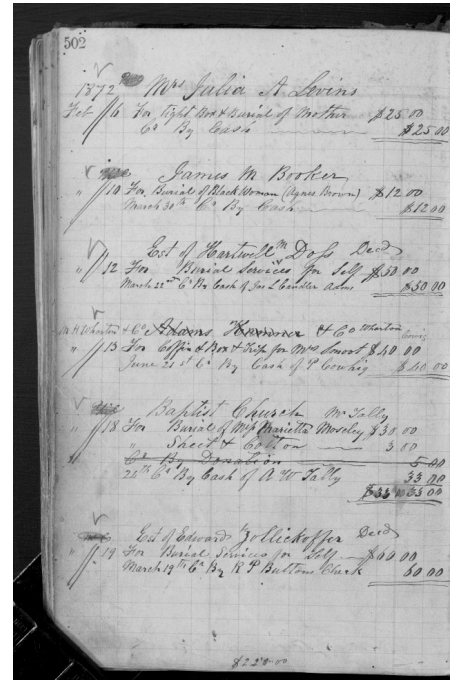 502
1872 Mrs Julia A Levins
Feb 6 For Tight Box & Burial of Mother $25 00
Cr By Cash $25 00
James M Booker
" 10 For Burial of Black Woman (Agnes Brown) $12 00
March 30th Cr By Cash $12 00
Est of Hartwell M Doss Decd
" 12 For Burial Services for Self $50 00
March 22nd Cr By Cash of Jas L Candler Adms $50 00
M H Wharton & Co Adams & Co Wharton
" 13 For Coffin & Box & Trip for Mrs Smort $40 00
June 21st Cr By Cash of P Cowhig $40 00
Baptist Church Mr Tally
" 18 For Burial of Miss Marietta Moseley $30 00
" Sheet & Cotton 3 00
Cr By Donation 5 00
24th Cr By Cash of A W Tally 33 00
33 00
Est of Edward Zollickoffer Decd
" 19 For Burial Services for Self $60 00
March 19th Cr By R P Buttons Check 60 00
$220.00